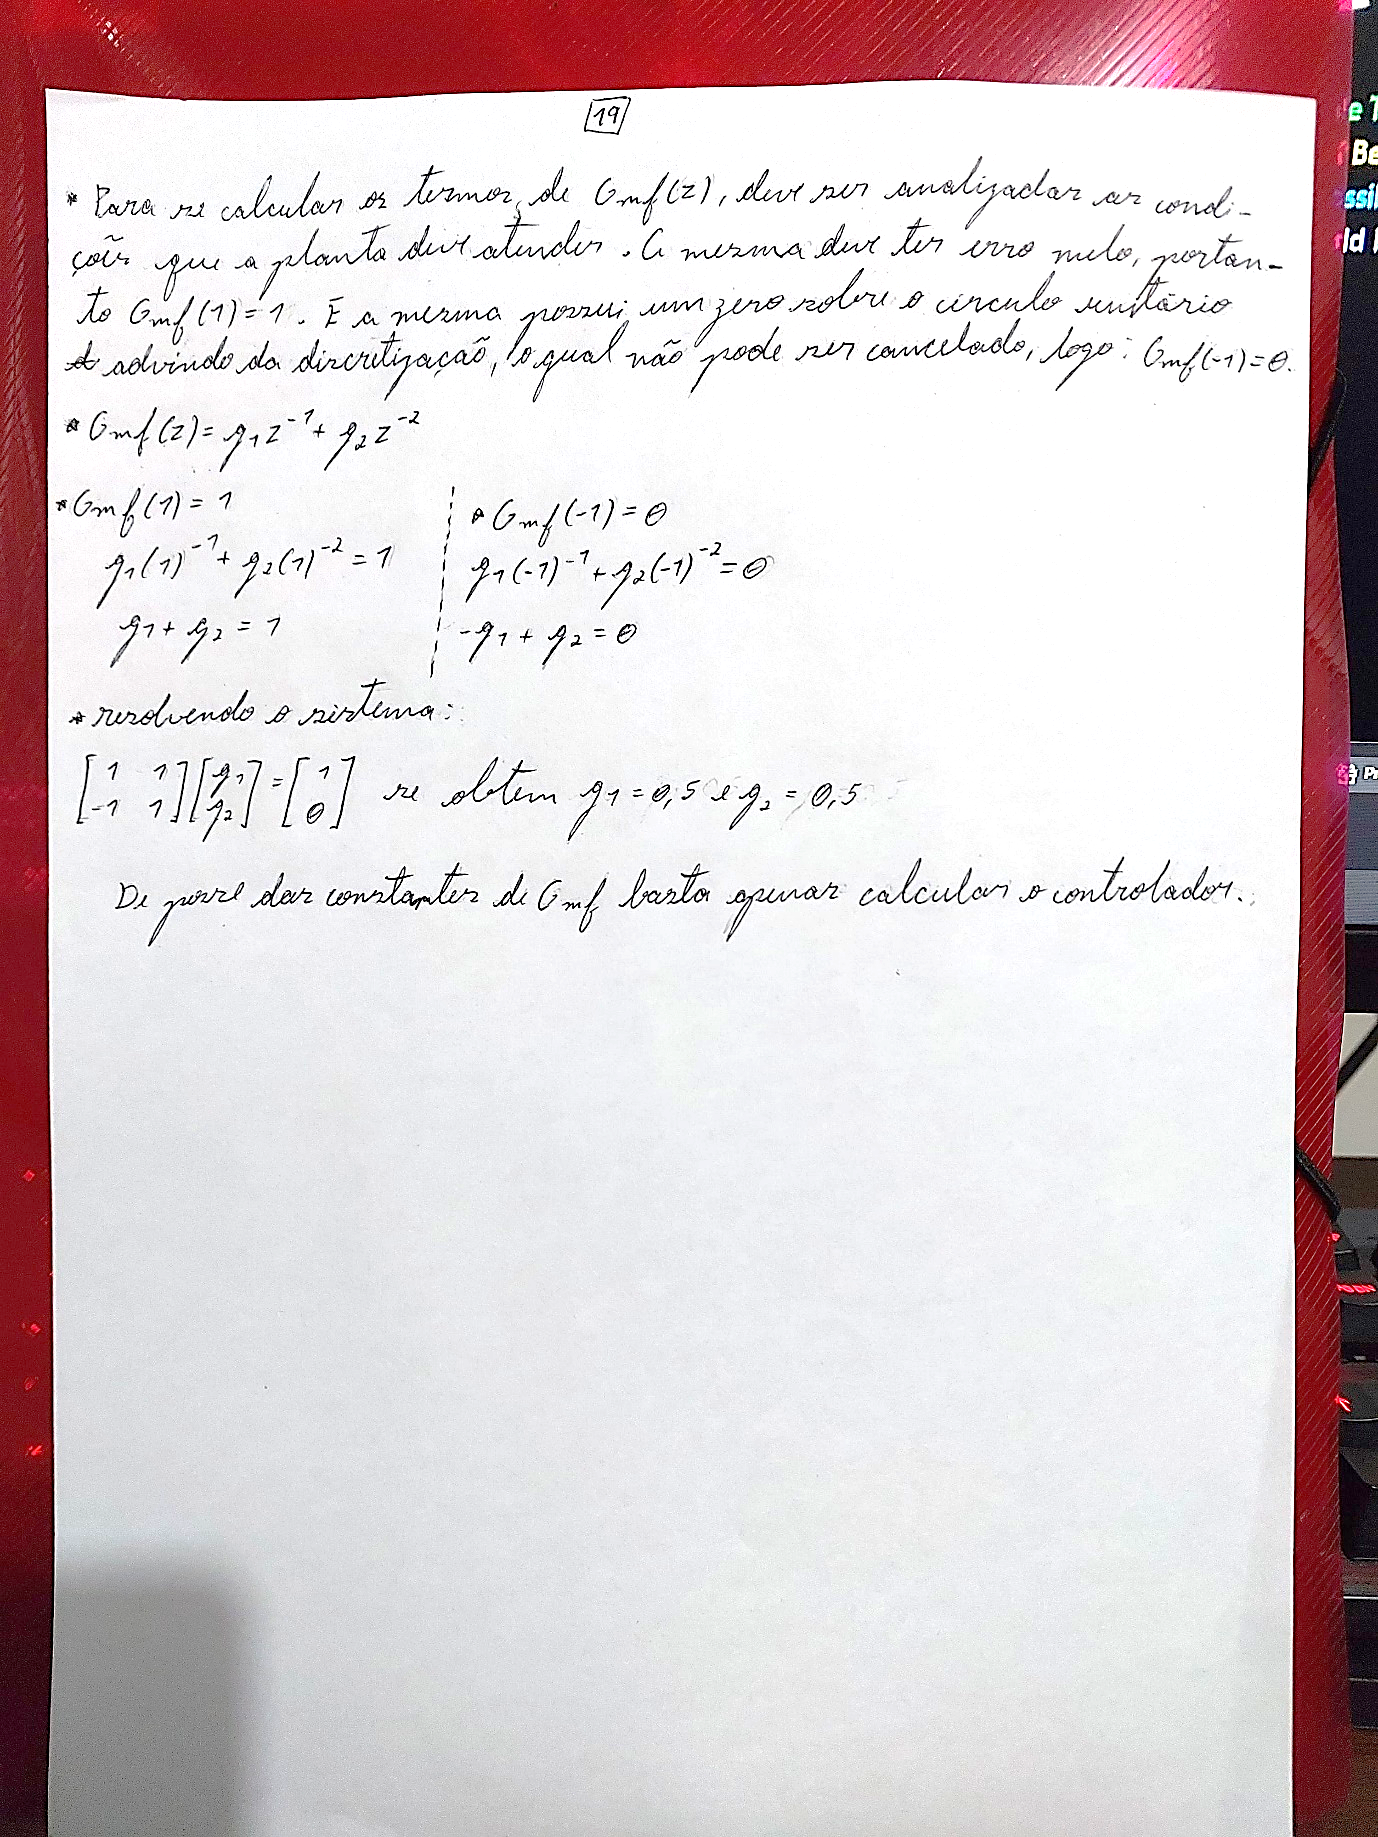 19
* Para se calcular os termos de Gmf(z), deve ser analizadas as condi-
ções que a planta deve atender. A mesma deve ter erro nulo, portan-
to Gmf(1)=1. E a mesma possui um zero sobre o círculo unitário
advindo da discretização, o qual não pode ser cancelado, logo: Gmf(-1)=0.
* Gmf(z)= g₁z⁻¹ + g₂z⁻²
* Gmf(1)= 1
g₁(1)⁻¹ + g₂(1)⁻² = 1
g₁ + g₂ = 1
* Gmf(-1)=0
g₁(-1)⁻¹ + g₂(-1)⁻² = 0
-g₁ + g₂ = 0
* resolvendo o sistema:
[1 1; -1 1][g₁; g₂] = [1; 0] se obtem g₁ = 0,5 e g₂ = 0,5
De posse das constantes de Gmf basta apenas calcular o controlador.
e T
Be
ssi
ld